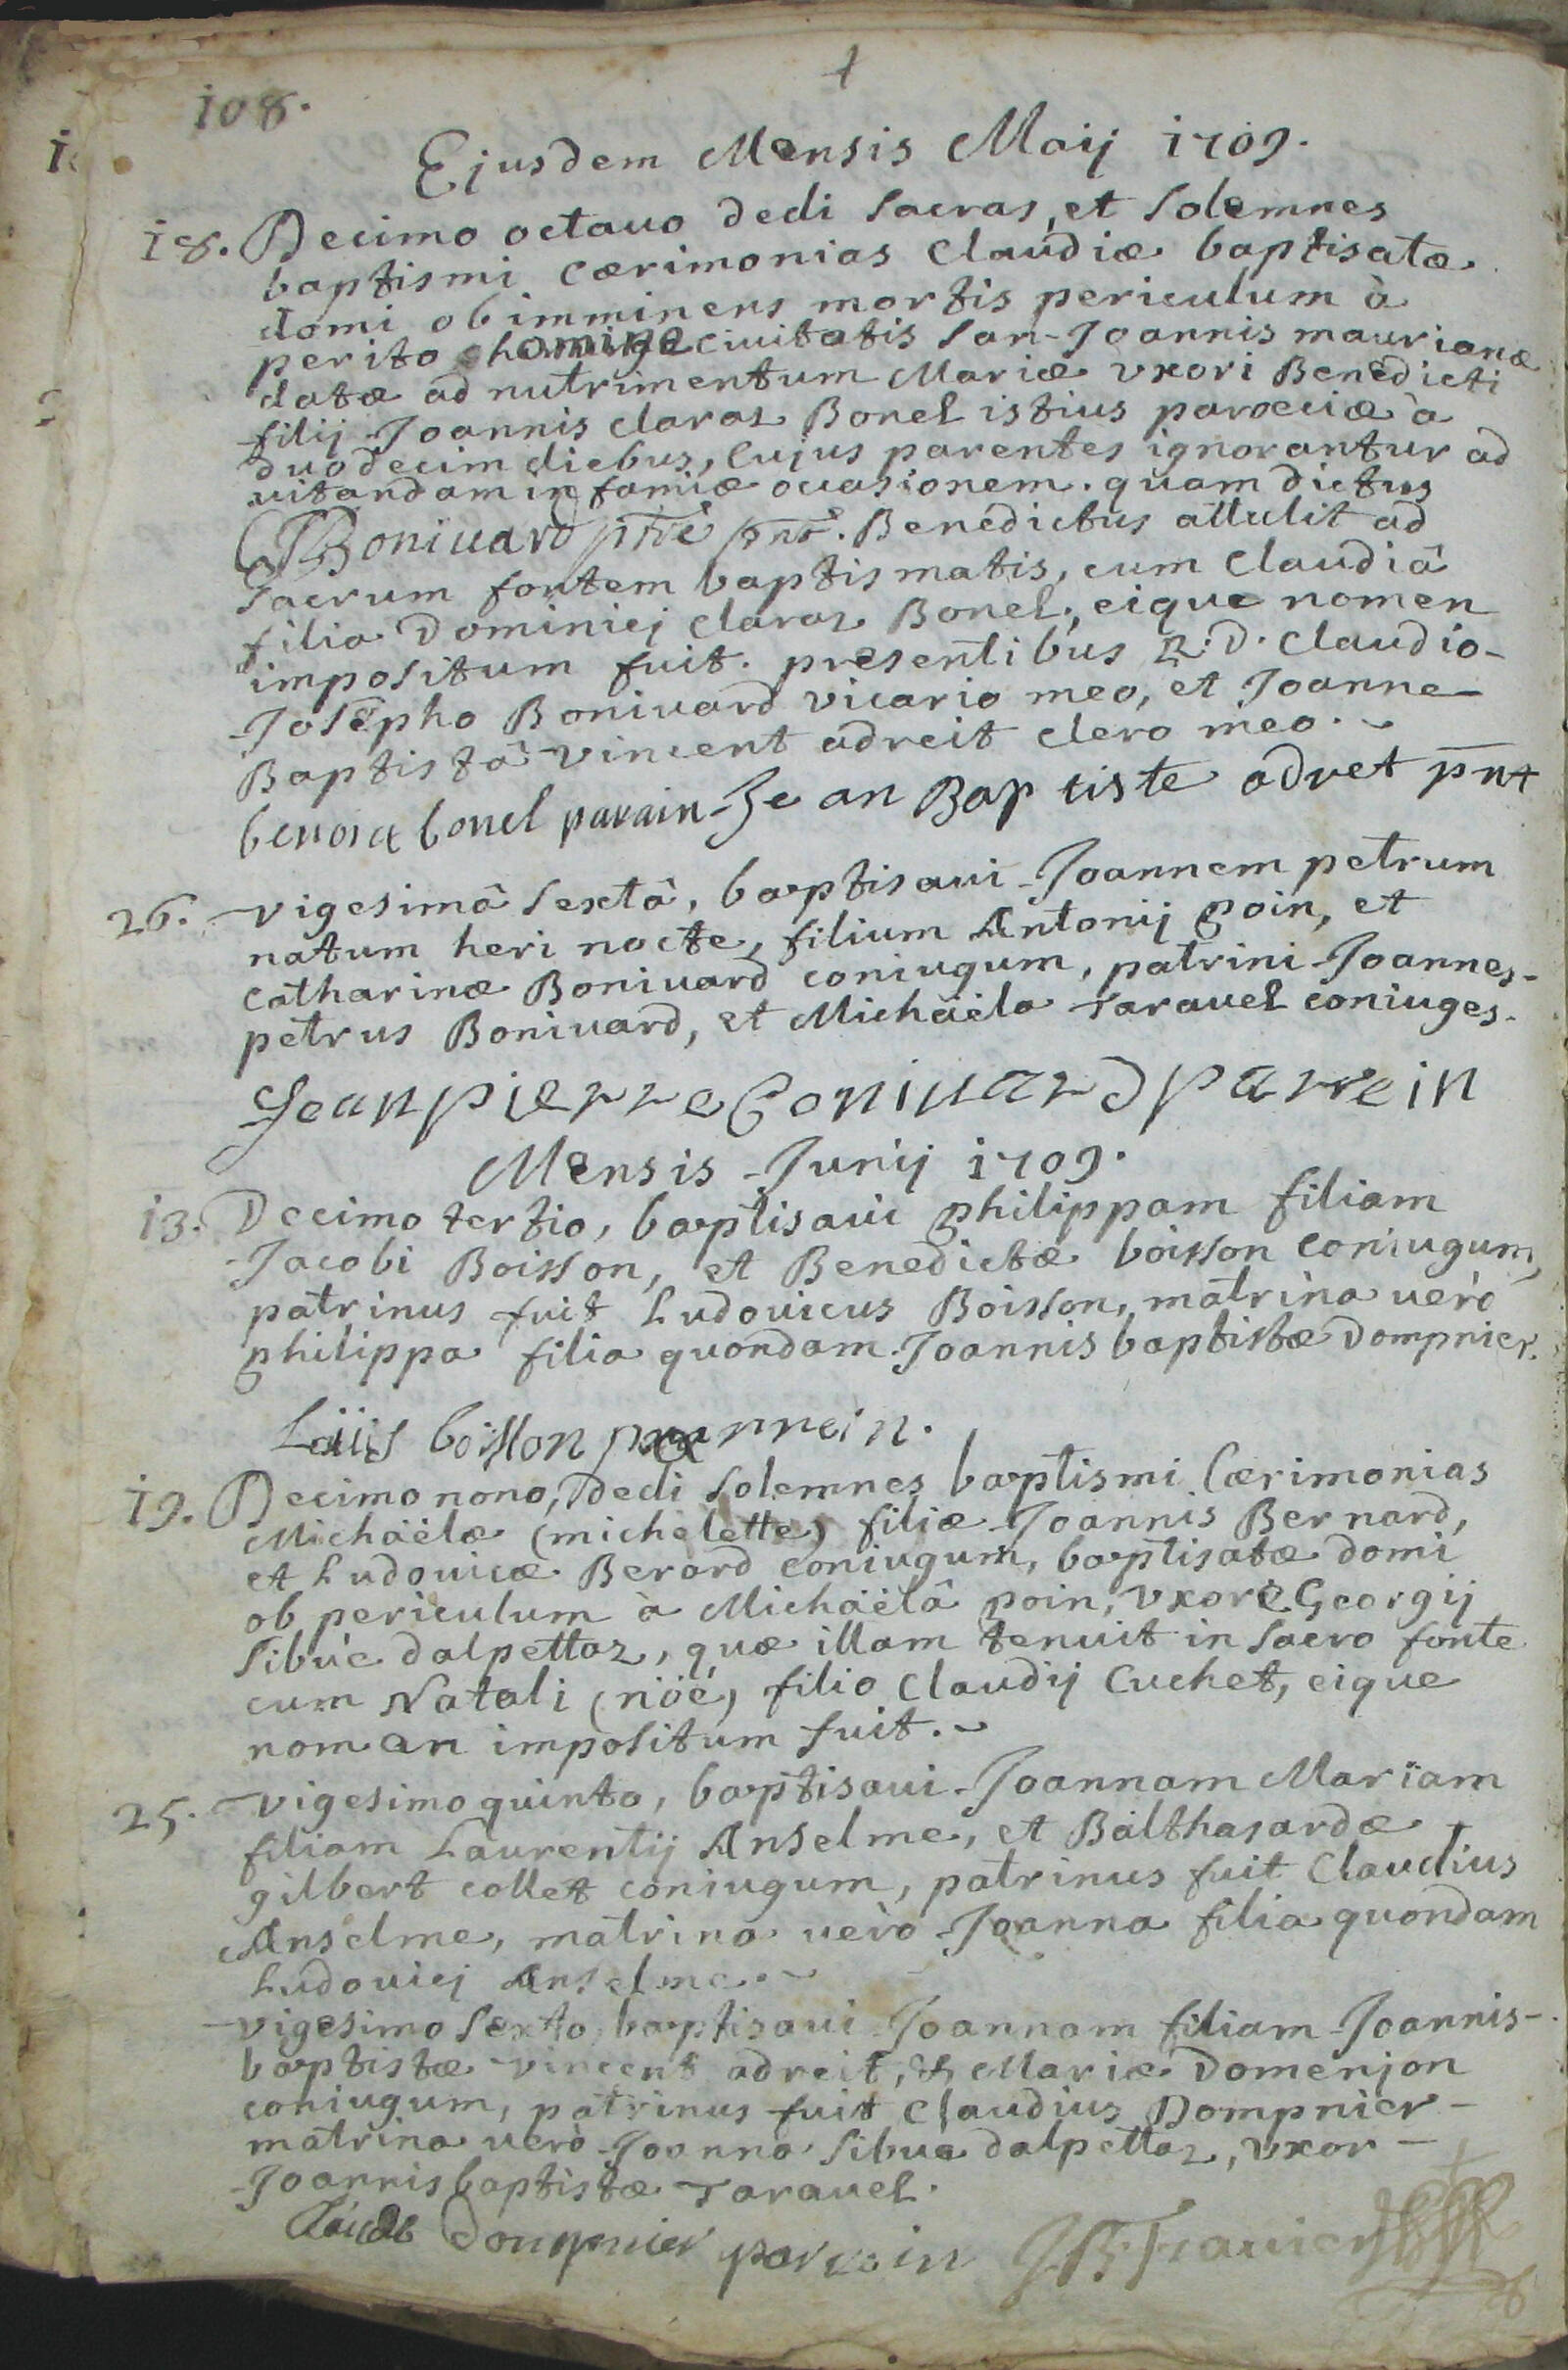 †
108.
Ejusdem Mensis Maij 1709.
18. Decimo octavo dedi sacras, et solemnes
baptismi cærimonias Claudiæ baptisatæ
domi ob imminens mortis periculum à
perito homine civitatis San-Joannis maurianæ
datæ ad nutrimentum Mariæ uxori Benedicti
filij Joannis claraz Bonel istius parœciæ a
duodecim diebus, cujus parentes ignorantur ad
vitandam infamiæ occasionem. quam dictus
Bonivard ptre pnt. Benedictus attulit ad
sacrum fontem baptismatis, cum Claudiâ
filia Dominicj claraz Bonel, eique nomen
impositum fuit. presentibus R.D. Claudio-
Josepho Bonivard vicario meo, et Joanne-
Baptistâ vincent adreit clero meo.~
benoit bonel parain Jean Baptiste adret pnt
26. vigesimâ sextâ, baptisavi Joannem petrum
natum heri nocte, filium Antonij poin, et
catharinæ Bonivard coniugum, patrini Joannes-
petrus Bonivard, et Michaëla Taravel coniuges.
Jean pierre bonivard parrein
Mensis Junij 1709.
13. Decimo tertio, baptisavi philippam filiam
Jacobi Boisson, et Benedictæ boisson coniugum,
patrinus fuit Ludovicus Boisson, matrina verò
philippa filia quondam Joannis baptistæ Dompnier.
Loüis boisson parrein.
19. Decimo nono, dedi solemnes baptismi cærimonias
Michaëlæ (michelette) filiæ Joannis Bernard,
et Ludovicæ Berard coniugum, baptisatæ domi
ob periculum à Michaëlâ poin, uxore Georgij
sibue dalpettaz, quæ illam tenuit in sacro fonte
cum Natali (nöé) filio Claudij Cuchet, eique
nomen impositum fuit.~
25. vigesimo quinto, baptisavi Joannam Mariam
filiam Laurentij Anselme, et Balthasardæ
gilbert collet coniugum, patrinus fuit Claudius
Anselme, matrina verò Joanna filia quondam
Ludovicj Anselme.~
vigesimo sexto baptisavi Joannam filiam Joannis-
baptistæ vincent adreit, & Mariæ Domenjon
coniugum, patrinus fuit Claudius Dompnier-
matrina verò Joanna sibue dalpettaz, uxor-
Joannis baptistæ Taravel.
Claude dompnier parrein J.B. Travier